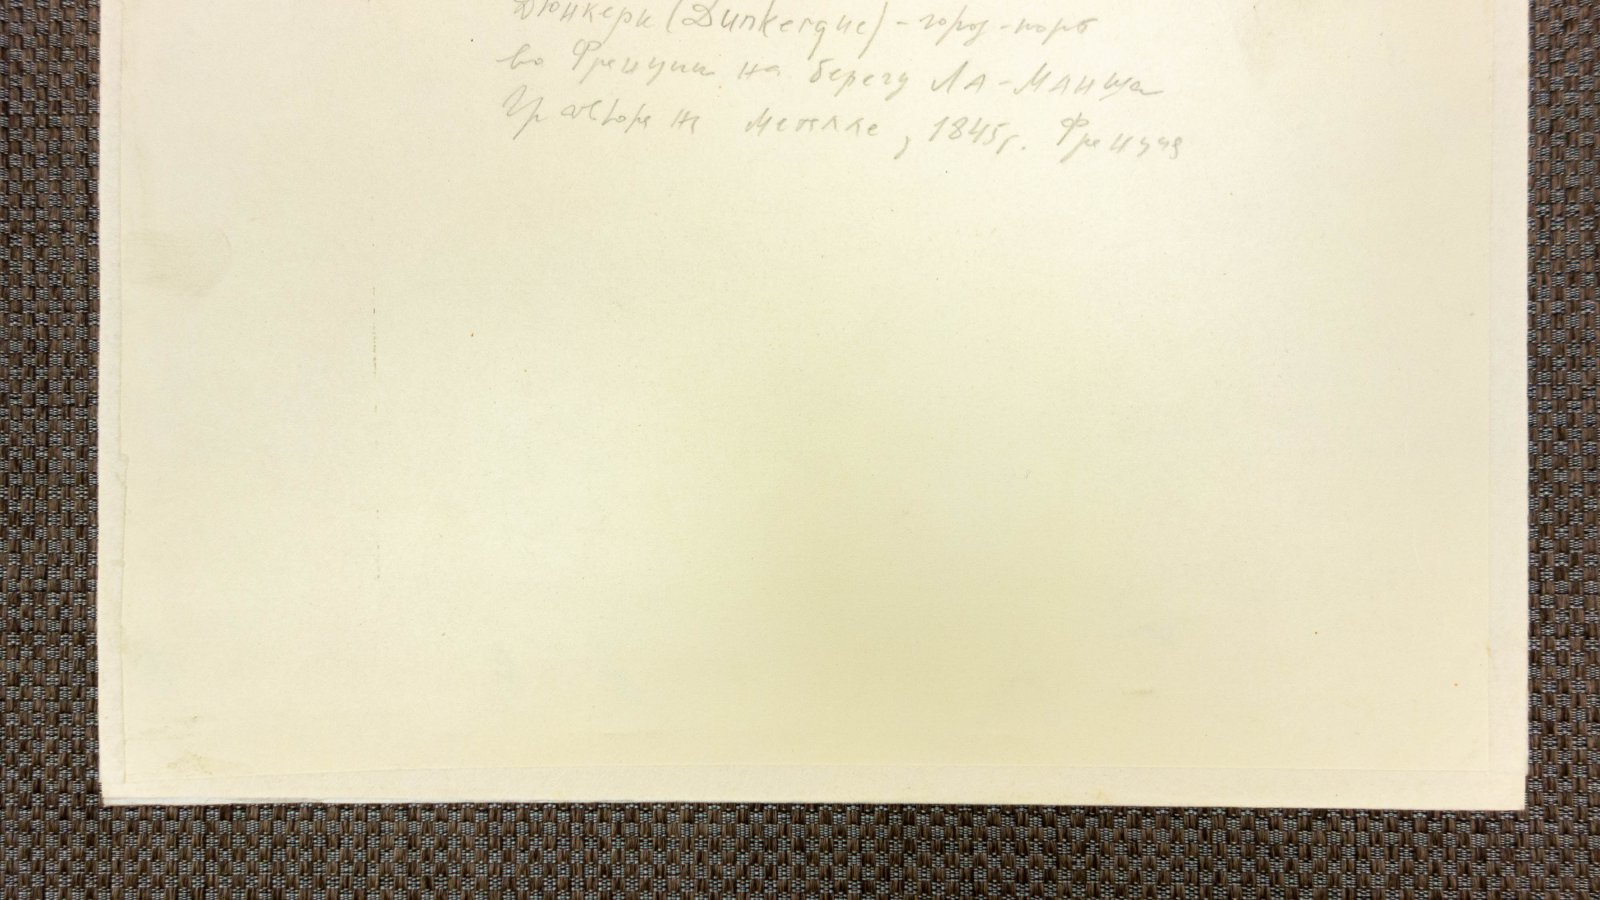 Дюнкерк (Dunkerque) - город-порт
во Франции на берегу Ла-Манша
Гравюра на металле, 1845г. Франция